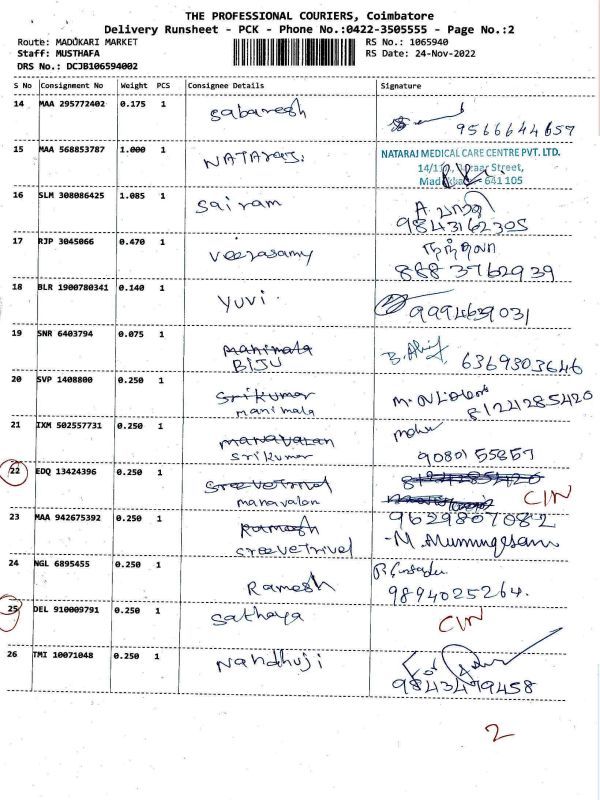 THE PROFESSIONAL COURIERS, Coimbatore
Delivery Runsheet - PCK - Phone No.:0422-3505555 - Page No.:2
Route: MADUKARI MARKET
RS No.: 1065940
Staff: MUSTHAFA
RS Date: 24-Nov-2022
DRS No.: DCJB106594002
S No Consignment No Weight PCS Consignee Details Signature
14 MAA 295772402 0.175 1 Sabaresh
9566644657
15 MAA 568853787 1.000 1 NATAraj.
NATARAJ MEDICAL CARE CENTRE PVT. LTD.
Street,
641 105
16 SLM 308086425 1.085 1 Sairam
9843162305
17 RJP 3045066 0.470 1 Veerasamy
8883762939
18 BLR 1900780341 0.140 1 Yuvi.
9994639031
19 SNR 6403794 0.075 1 manimala
BIJU
6369303646
20 SVP 1408800 0.250 1 Srikumar
manimala
8124285420
21 IXM 502557731 0.250 1 manavalan
Srikumar
9080155857
22 EDQ 13424396 0.250 1 Sreevetrivel
manavalan
CIN
23 MAA 942675392 0.250 1 Ramesh
Sreevetrivel
9629807082
-M. Murrugesan
24 NGL 6895455 0.250 1 Ramesh
9894025264.
25 DEL 910009791 0.250 1 Sathaya
CIN
26 TMI 10071048 0.250 1 Nandhuji
9843479458
2